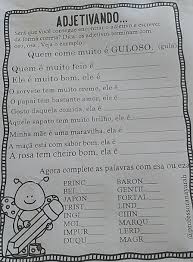 ADJETIVANDO...
Será que você consegue encontrar o adjetivo e escrever
da forma correta? Dica: os adjetivos terminam com
oso, osa. Veja o exemplo:
Quem come muito é GULOSO. (gula)
Quem é muito feio é
Ele é muito bom, ele é
O sorvete tem muito creme, ele é
O papai tem bastante amor, ele é
Gosto daquela comida, ela é
aquele sapato tem muito brilho, ele é
Minha mãe é uma maravilha, ela é
A maçã está com sabor bom, ela é
A rosa tem cheiro bom, ela é
Agora complete as palavras com esa ou ez
PRINC BARON
BEL GENTIL
JAPON PORTAL
TRIST LIND
INGL CHIN
MOL MARQU
IMPUR LERD
DUQU MAGR